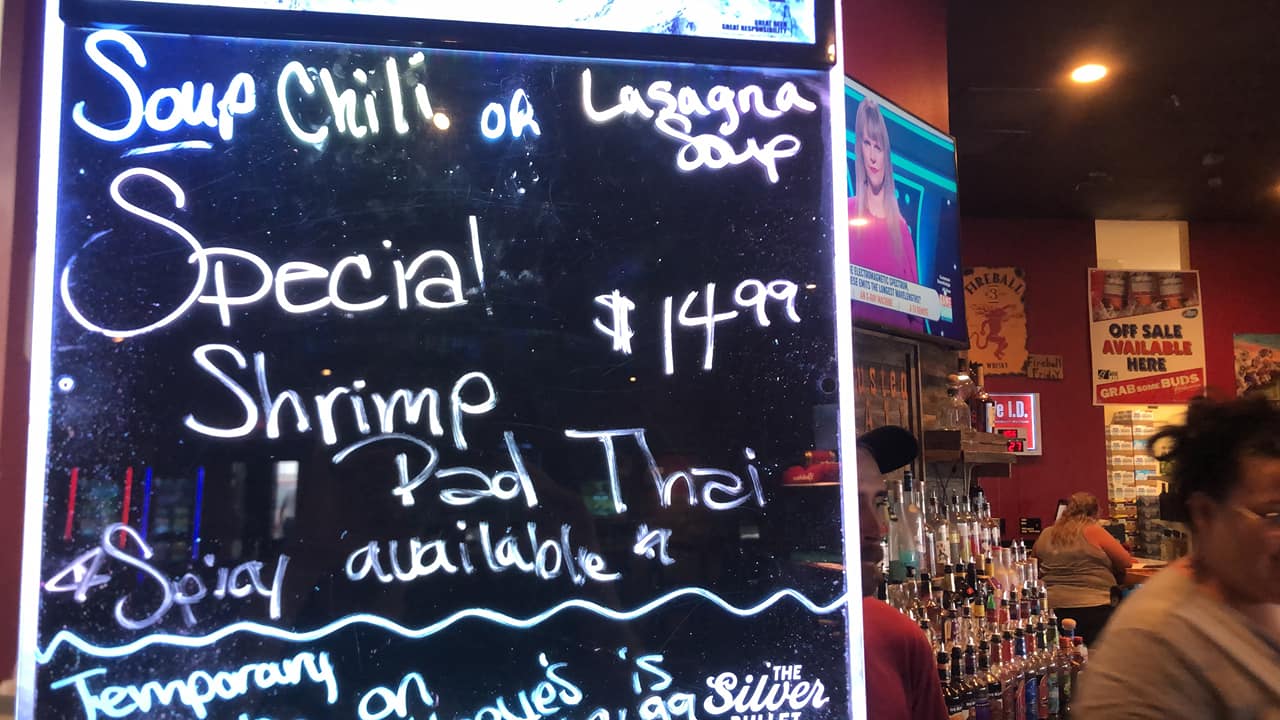 GREAT BEER
GREAT RESPONSIBILITY
Soup Chili or Lasagna
Soup
Special
$14.99
Shrimp
Pad Thai
*Spicy available*
Temporary on is
99
THE
Silver
BULLET
E ELECTROMAGNETIC SPECTRUM,
ESE EMITS THE LONGEST WAVELENGTHS?
FIREBALL
WHISKY
Fireball
OFF SALE
AVAILABLE
HERE
GRAB SOME BUDS
We I.D.